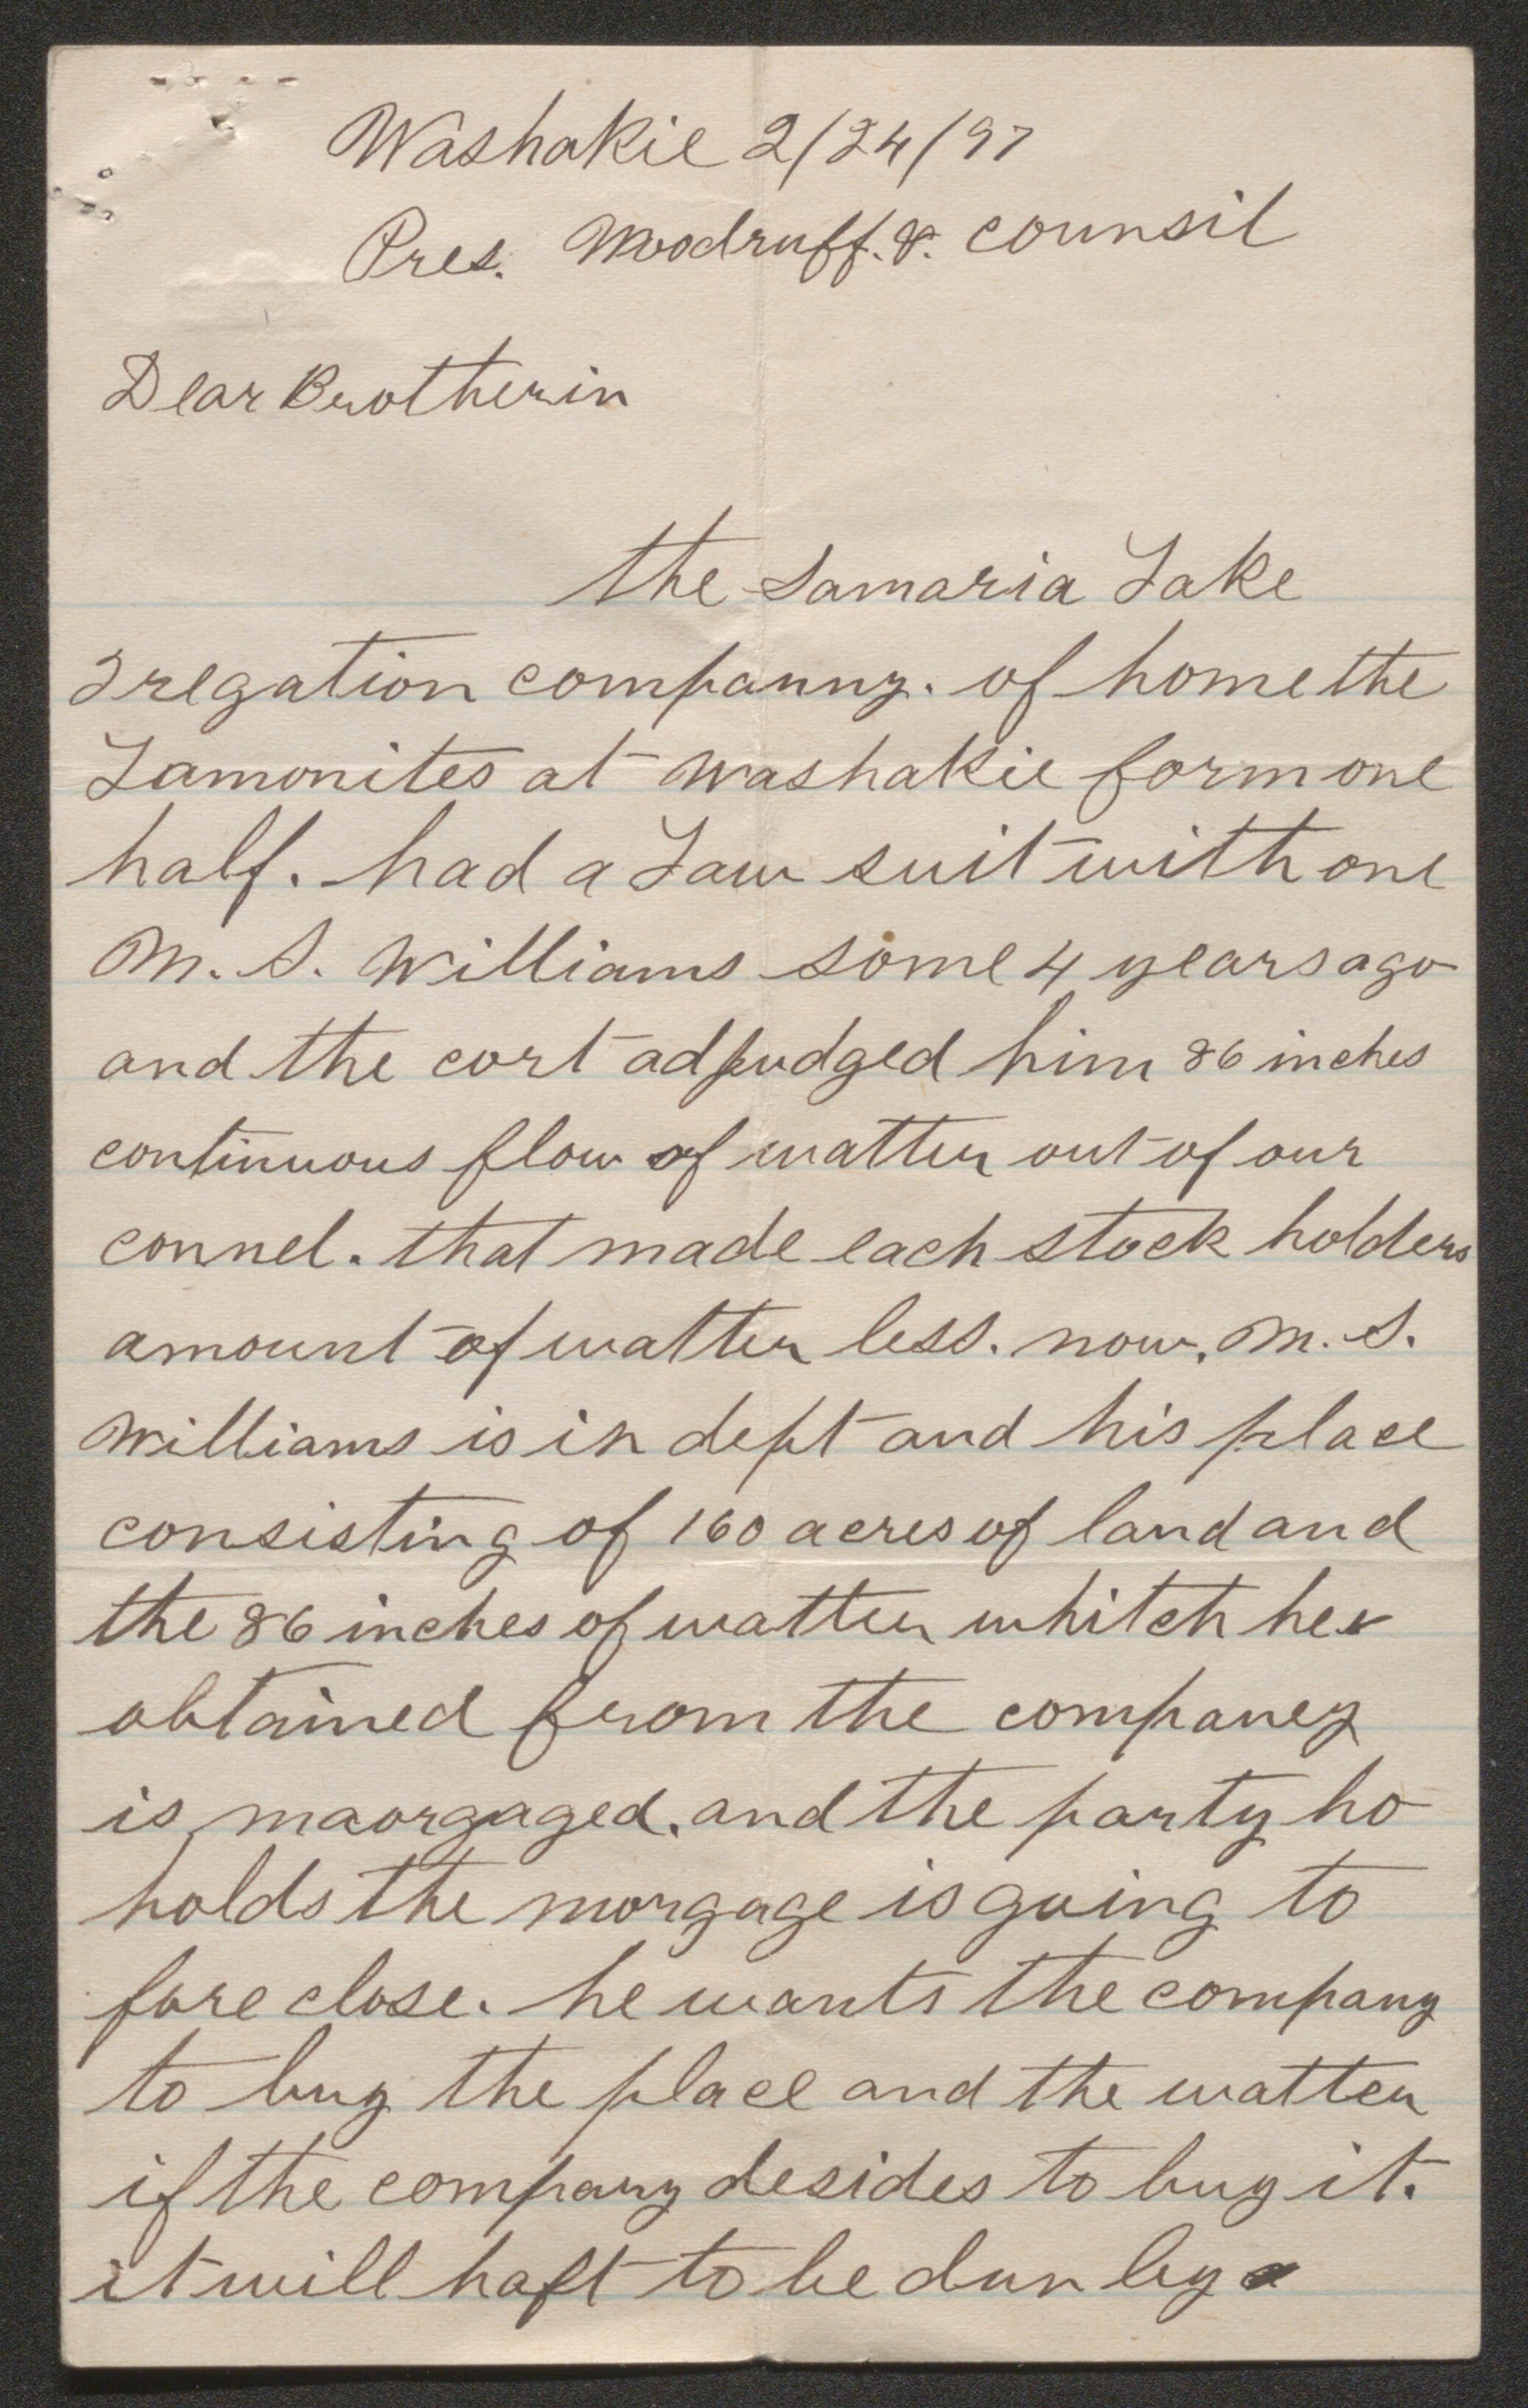 Washakie 2/24/97
Pres. Woodruff. &. counsil
Dear Brotherin
the Samaria Lake
Iregation companny. of home the
Lamonites at Washakie form one
half. had a Law suit with one
M. S. Williams some 4 years ago
and the cort adjudged him 86 inches
continuous flow of watter out of our
connel. that made each stock holders
amount of watter less. now. M. S.
Williams is in dept and his place
consisting of 160 acres of land and
the 86 inches of watter whitch he
obtained from the companey
is maorgaged. and the party ho
holds the morgage is going to
fore close. he wants the company
to buy the place and the watter
if the company desides to buy it.
it will haft to be dun by